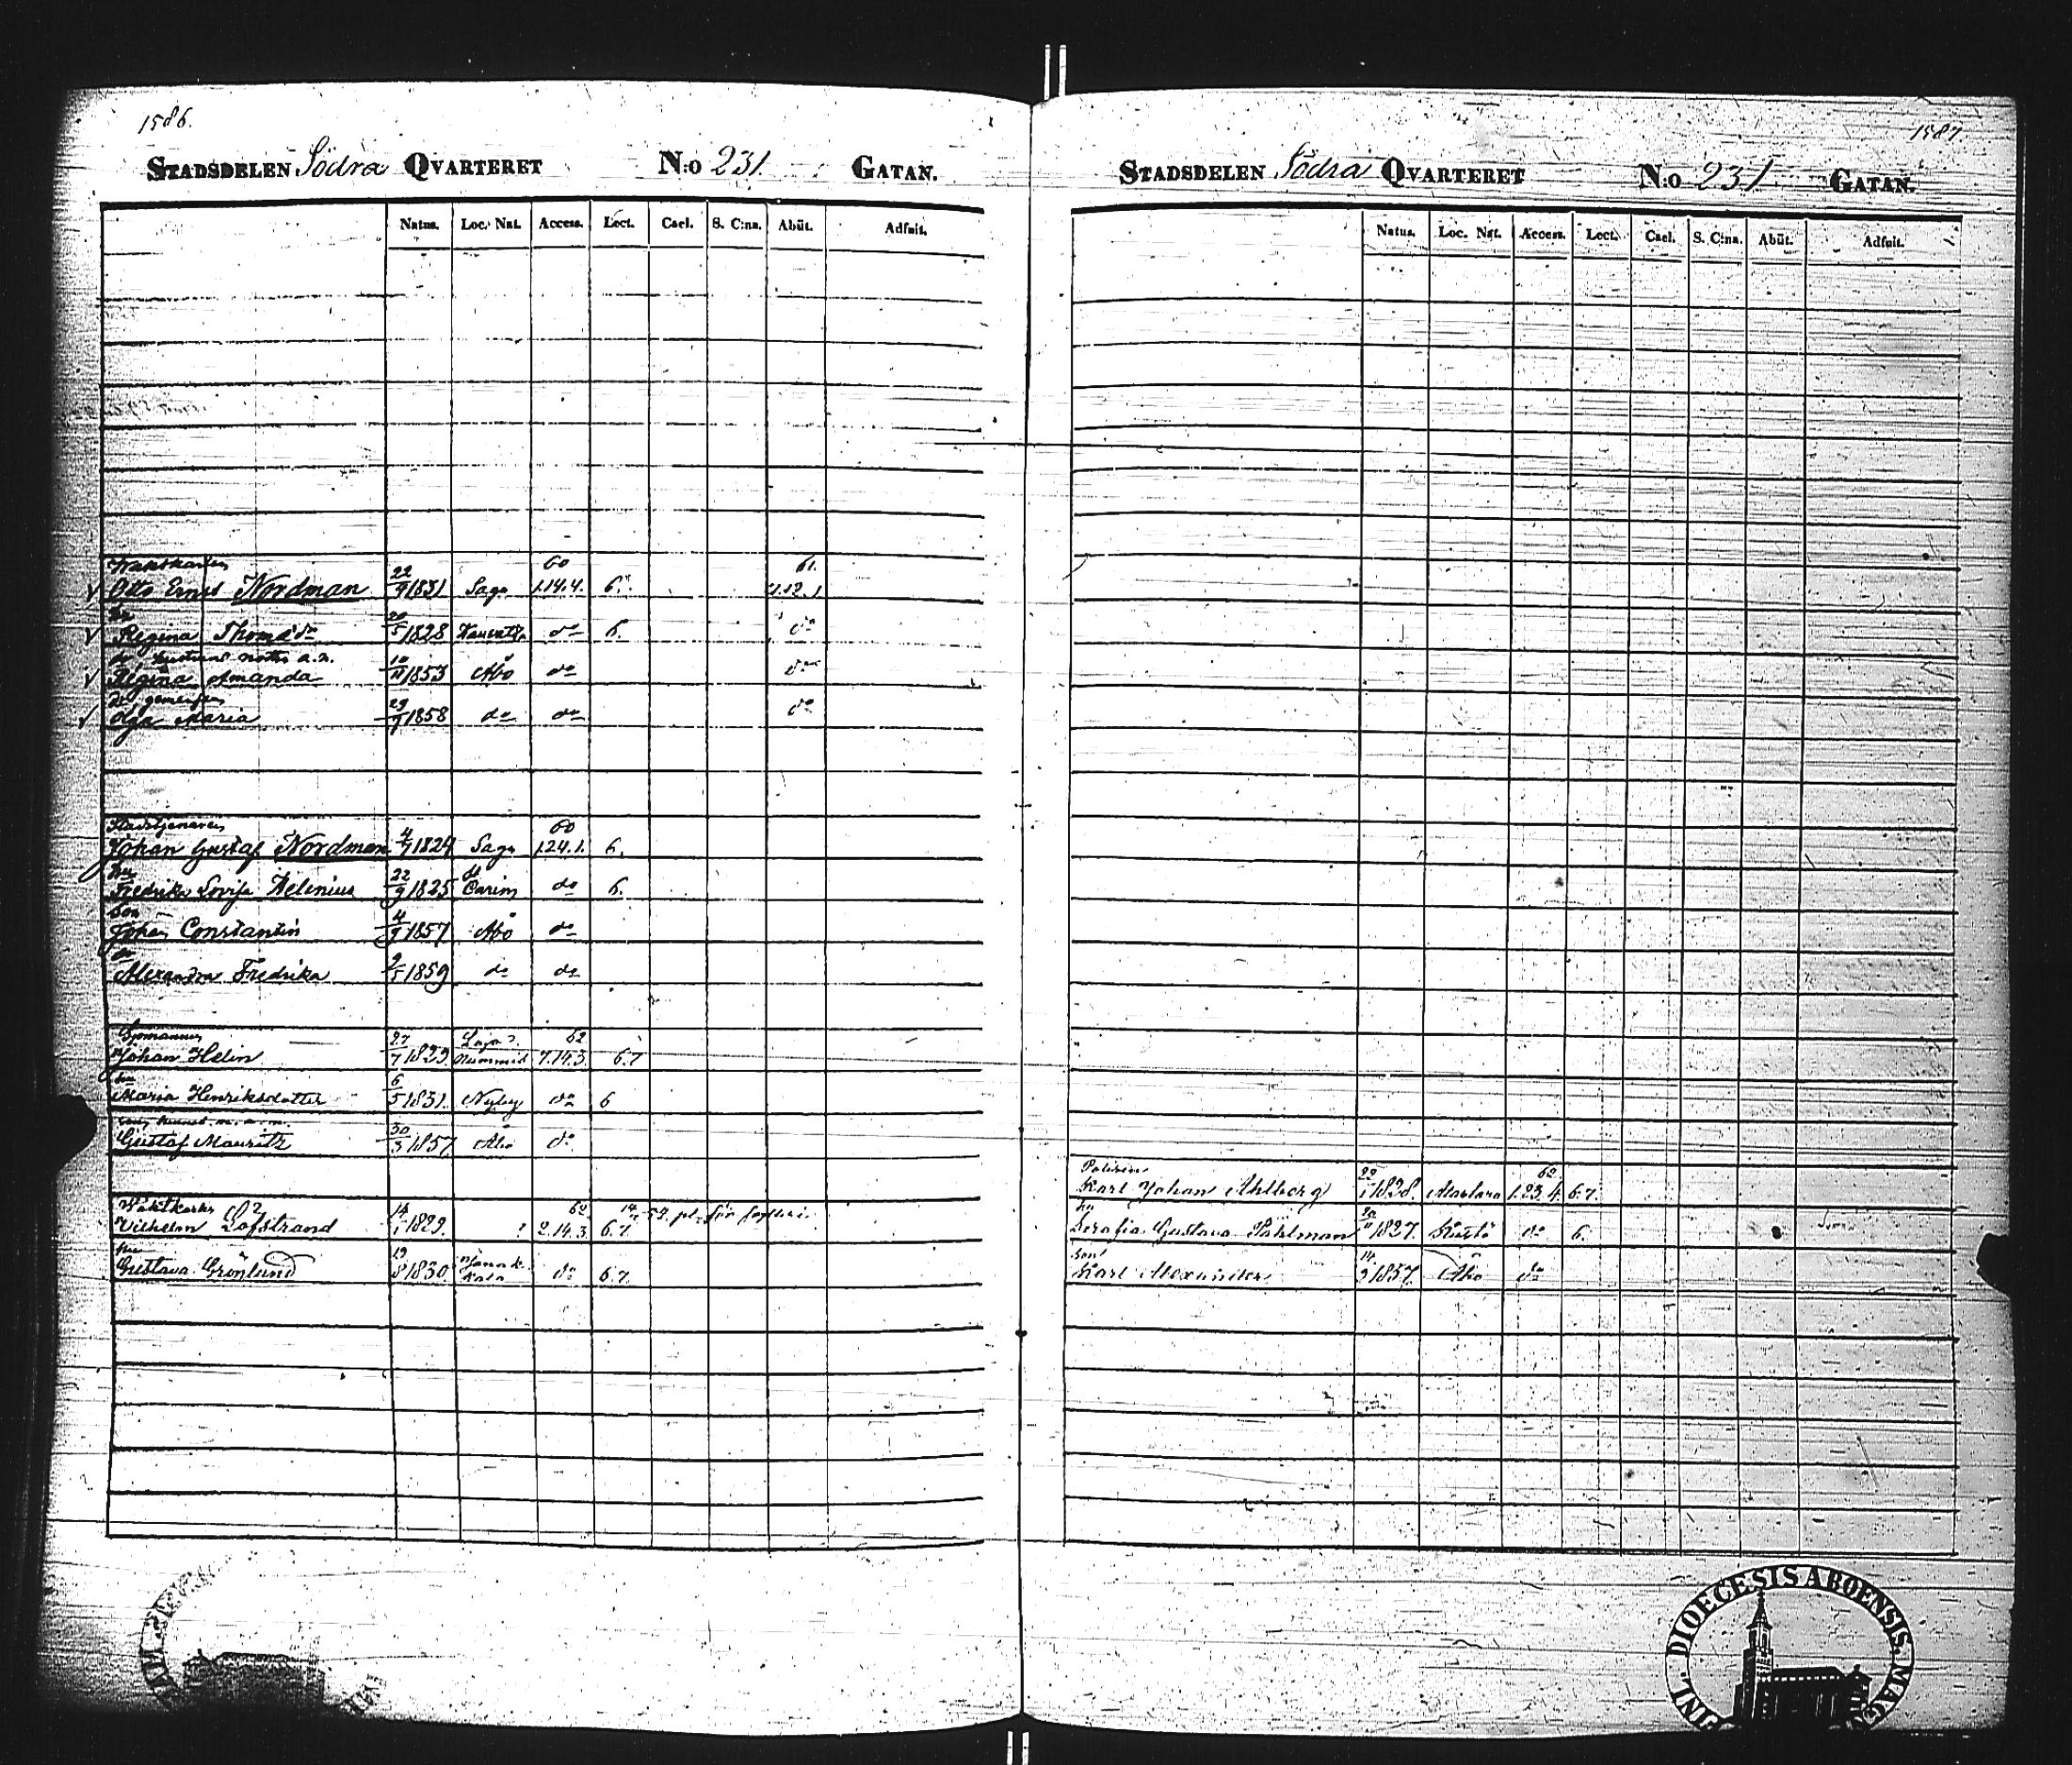 1586.
STADSDELEN Södra QVARTERET N:o 231. GATAN.
Natus. Loc. Nat. Access. Lect. Cael. S. C:na. Abüt. Adfuit.
60 61.
Otto Ernst Nordman 22/9 1831 Sagu 1.14.4. 6. 4.12.1
hu
Regina Thomasdr 20/5 1828 do 6. do
Regina Amanda 10/11 1853 Åbo do do
Olga Maria 29/9 1858 do do do
Stadstjenaren 60
Johan Gustaf Nordman 4/7 1824 Sagu 1.24.1. 6.
hu do
Fredrika Lovisa Helenius 22/9 1825 Carins do 6.
Son
Johan Constantin 4/9 1857 Åbo do
dr
Alexandra Fredrika 9/5 1859 do do
62
Johan Helin 27/7 1823 Nummis 7.14.3. 6.7
hu
Maria Henriksdotter 6/5 1831. Nyby do 6
Gustaf Mauritz 30/3 1857 Åbo do
Waktkarlen 62
Vilhelm Löfstrand 14/1 1829. ? 2.14.3. 6.7. för fylleri
hu
Gustava Grönlund 19/8 1830 do 6.7.
1587
STADSDELEN Södra QVARTERET N:o 231 GATAN.
Natus. Loc. Nat. Access. Lect. Cael. S. C:na. Abüt. Adfuit.
Polisen 62
Karl Johan Ahlberg 1828. 1.23.4. 6.7.
hu
Serafia Gustava Påhlman 1827. Kustö do 6.
son
Karl Alexander 14/9 1857. Åbo do
DIOECESIS ABOENSIS